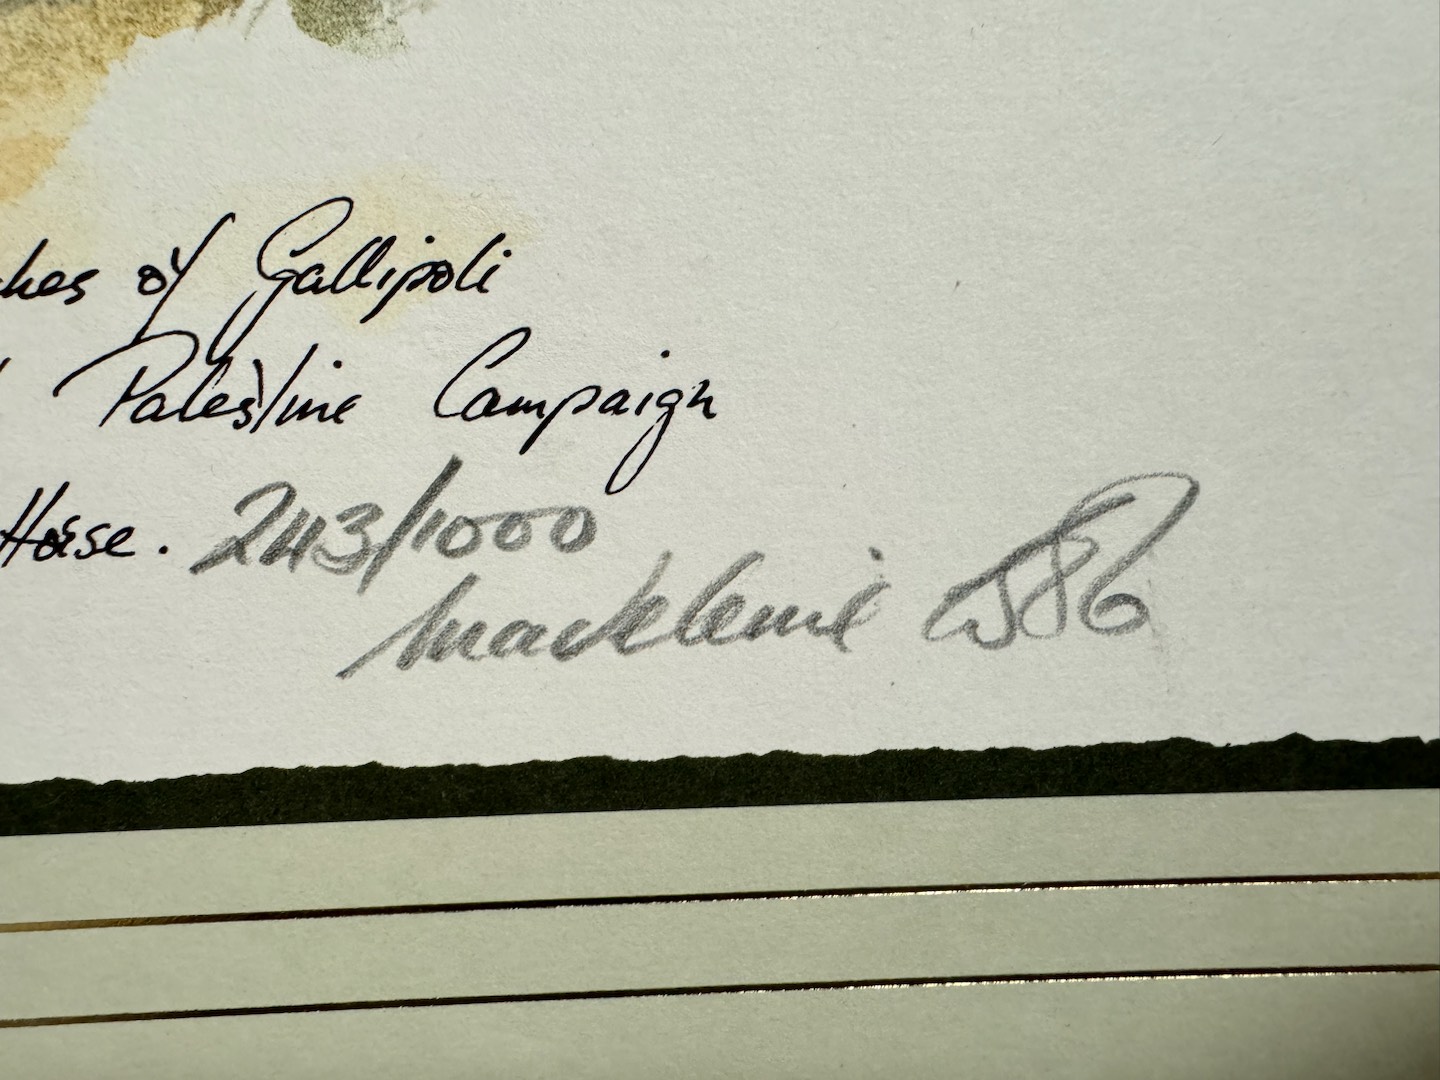 ches of Gallipoli
Palestine Campaign
Horse. 243/1000
Madeleine